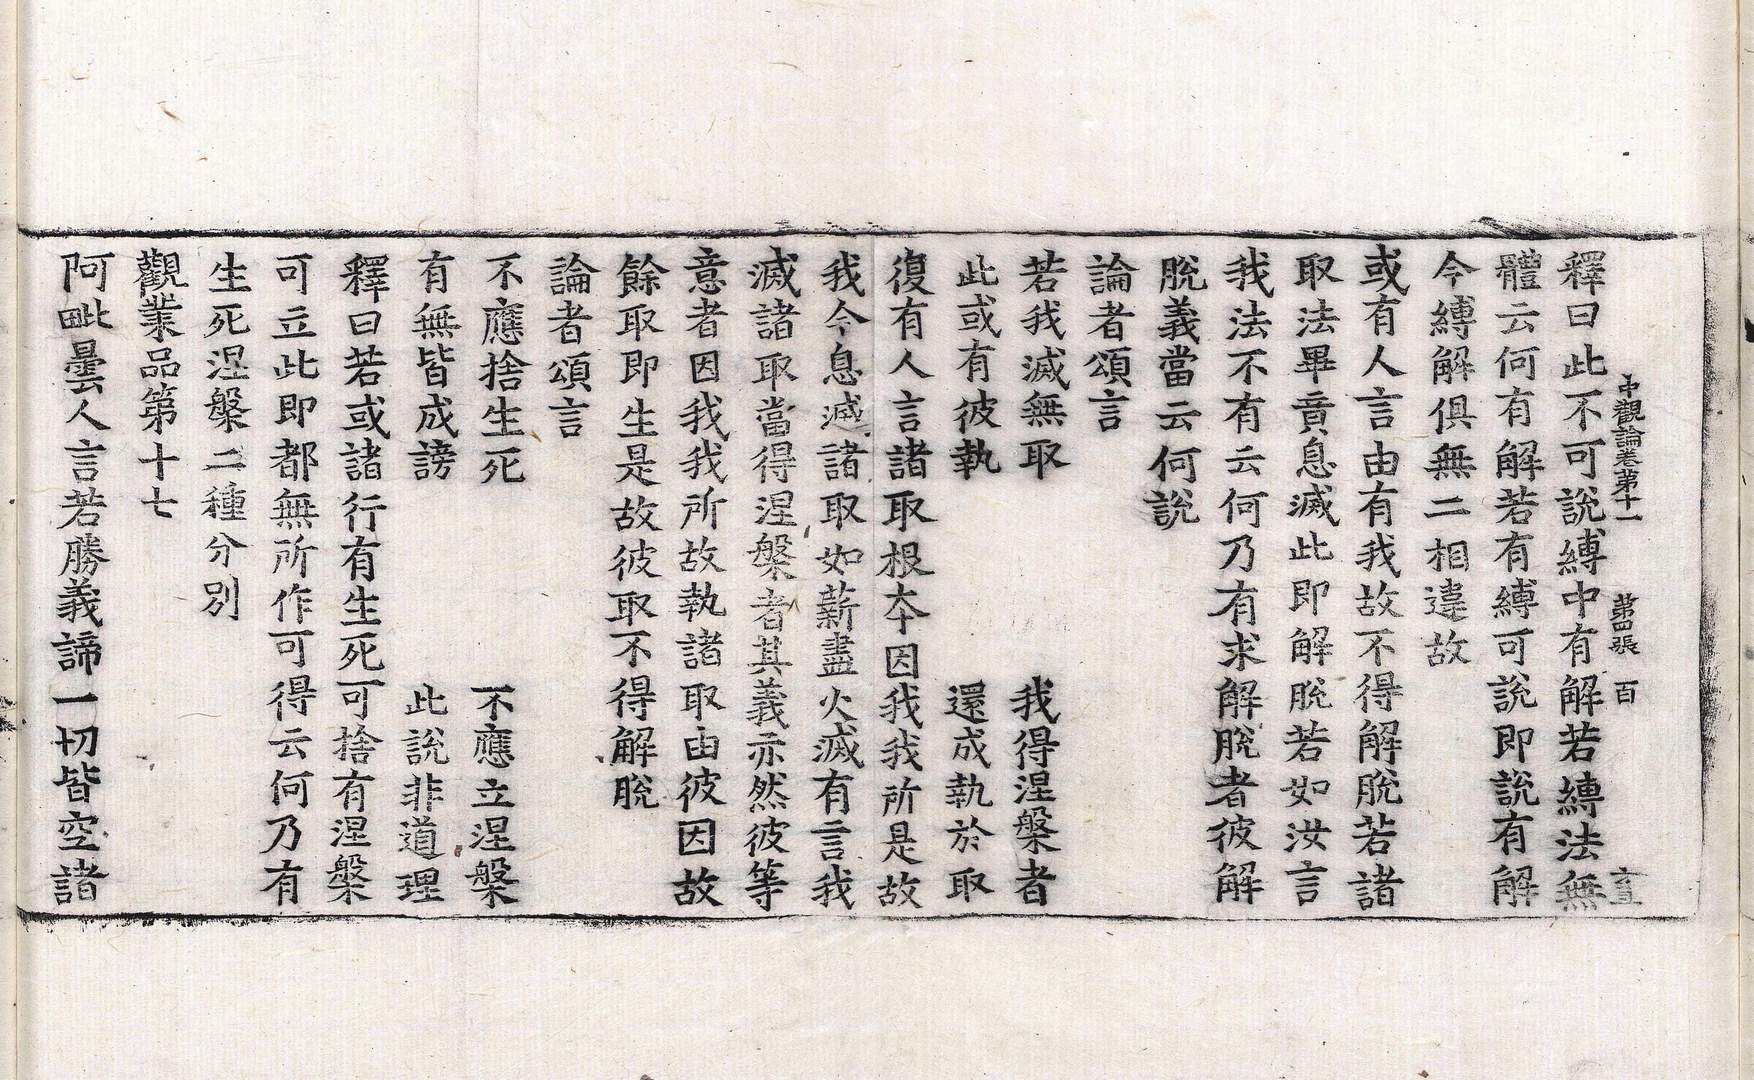 中觀論卷第十一 第四張 百
釋曰此不可說縛中有解若縛法無
體云何有解若有縛可說即說有解
今縛解俱無二相違故
或有人言由有我故不得解脫若諸
取法畢竟息滅此即解脫若如汝言
我法不有云何乃有求解脫者彼解
脫義當云何說
論者頌言
若我滅無取 我得涅槃者
此或有彼執 還成執於取
復有人言諸取根本因我我所是故
我今息滅諸取如薪盡火滅有言我
滅諸取當得涅槃者其義亦然彼等
意者因我我所故執諸取由彼因故
餘取即生是故彼取不得解脫
論者頌言
不應捨生死 不應立涅槃
有無皆成謗 此說非道理
釋曰若或諸行有生死可捨有涅槃
可立此即都無所作可得云何乃有
生死涅槃二種分別
觀業品第十七
阿毗曇人言若勝義諦一切皆空諸